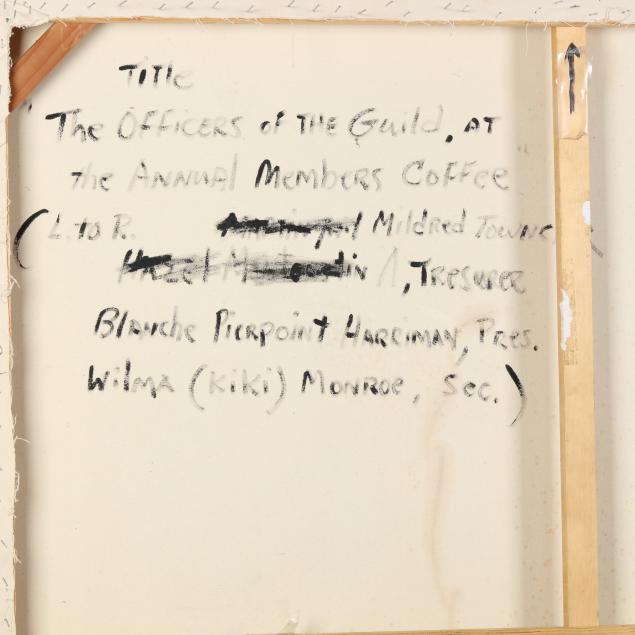 Title
"The Officers of the Guild, at
the Annual Members Coffee"
(L. to R. Mildred Towne,
Hazel , Tresurer
Blanche Pierpoint Harriman, Pres.
Wilma (Kiki) Monroe, Sec.)